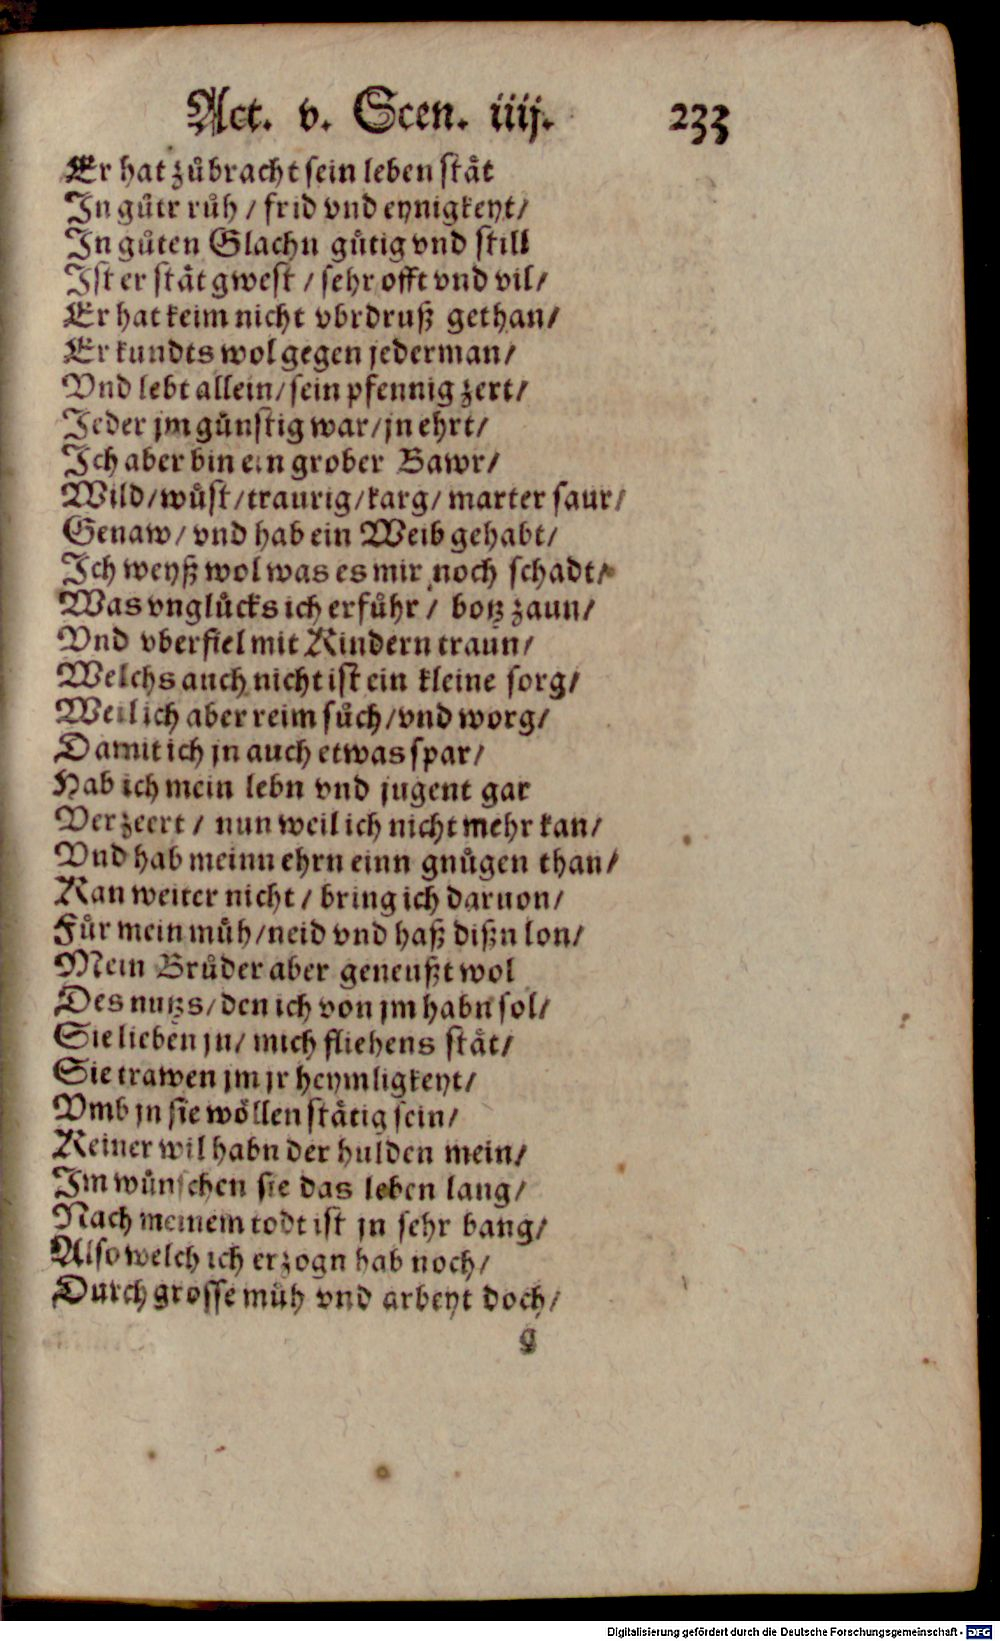 Act. v. Scen. iiij. 233
Er hat zůbracht sein leben stät
In gůtr růh / frid vnd eynigkeyt/
In gůten Glachn gůtig vnd still
Ist er stät gwest / sehr offt vnd vil/
Er hat keim nicht vbrdruß gethan/
Er kundts wol gegen jederman/
Vnd lebt allein/ sein pfennig zert/
Jeder jm günstig war/ jn ehrt/
Ich aber bin ein grober Bawr/
Wild/ wůst/ traurig/ karg/ marter saur/
Genaw/ vnd hab ein Weib gehabt/
Ich weyß wol was es mir noch schadt/
Was vnglücks ich erfůhr / botz zaun/
Vnd vberfiel mit Kindern traun/
Welchs auch nicht ist ein kleine sorg/
Weil ich aber reim sůch/ vnd worg/
Damit ich jn auch etwas spar/
Hab ich mein lebn vnd jugent gar
Verzeert / nun weil ich nicht mehr kan/
Vnd hab meinn ehrn einn gnůgen than/
Kan weiter nicht / bring ich daruon/
Für mein můh/ neid vnd haß dißn lon/
Mein Brůder aber geneußt wol
Des nutzs/ den ich von jm habn sol/
Sie lieben jn/ mich fliehens stät/
Sie trawen jm jr heymligkeyt/
Vmb jn sie wöllen stätig sein/
Keiner wil habn der hulden mein/
Im wünschen sie das leben lang/
Nach meinem todt ist jn sehr bang/
Also welch ich erzogn hab noch/
Durch grosse můh vnd arbeyt doch/
g
Digitalisierung gefördert durch die Deutsche Forschungsgemeinschaft - DFG